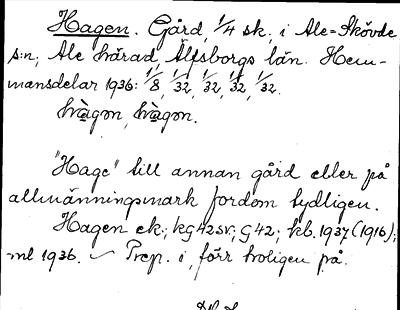 Hagen. Gård, 1/4 sk. i Ale-Skövde
s:n, Ale härad, Älfsborgs län. Hem-
mansdelar 1936: 1/8, 1/32, 1/32, 1/32, 1/32.
"Hage" till annan gård eller på
allmänningsmark fordom tydligen.
Hagen ek; kg 42sv; g 42; kb. 1937 (1916);
ml 1936. – Prep. i, förr troligen på.